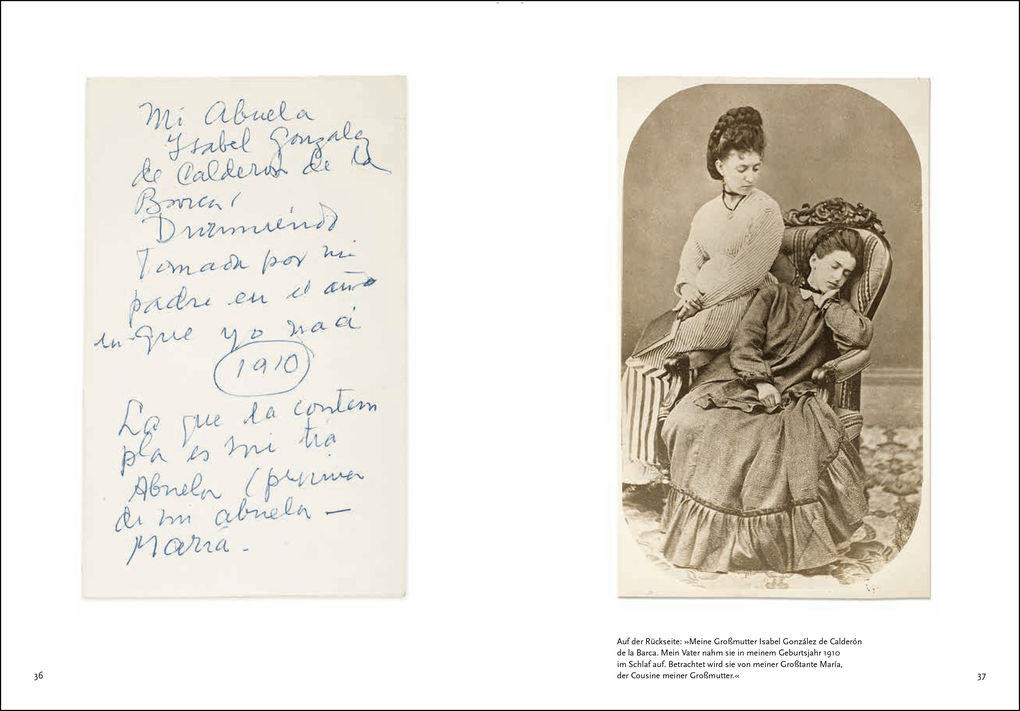 Mi Abuela
Ysabel Gonzalez
de Calderon de la
Barca,
Durmiendo
Tomada por mi
padre en el año
en que yo nací
1910
La que la contem
pla es mi tía
Abuela (prima
de mi abuela —
María.
36
Auf der Rückseite: »Meine Großmutter Isabel González de Calderón
de la Barca. Mein Vater nahm sie in meinem Geburtsjahr 1910
im Schlaf auf. Betrachtet wird sie von meiner Großtante María,
der Cousine meiner Großmutter.«
37